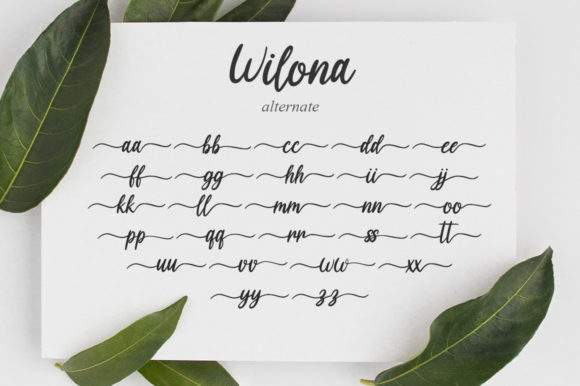 Wilona
alternate
aa bb cc dd ee
ff gg hh ii jj
kk ll mm nn oo
pp qq rr ss tt
uu vv ww xx
yy zz